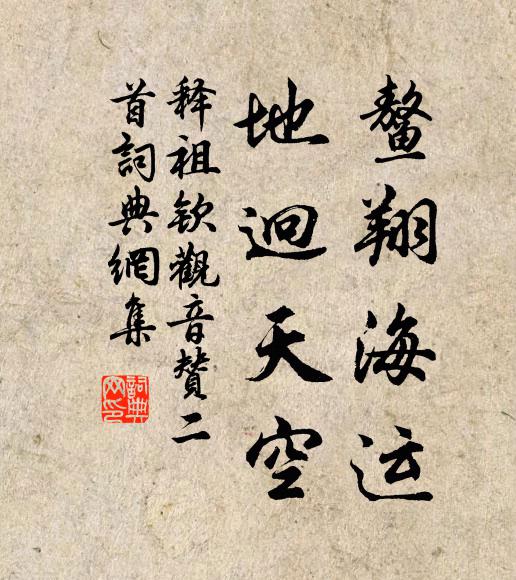 鳌翔海运
地迥天空
释祖钦觀音贊二
首詞典網集
詞典
网印